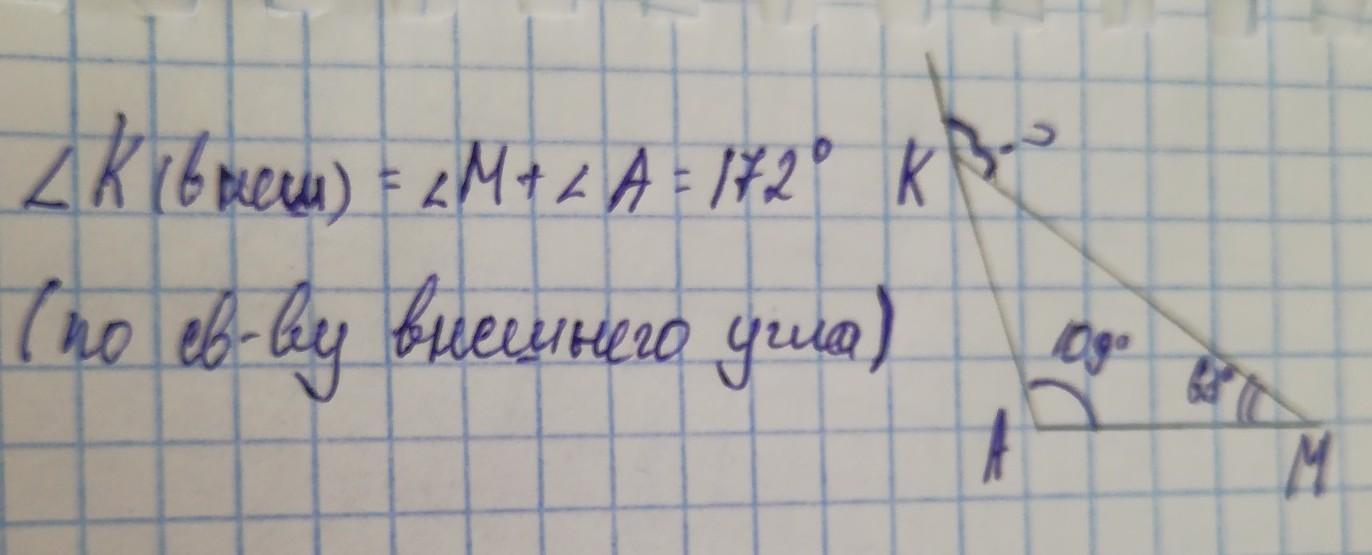 ∠K (внеш) = ∠M + ∠A = 172° K
(по св-ву внешнего угла)
109°
A
M